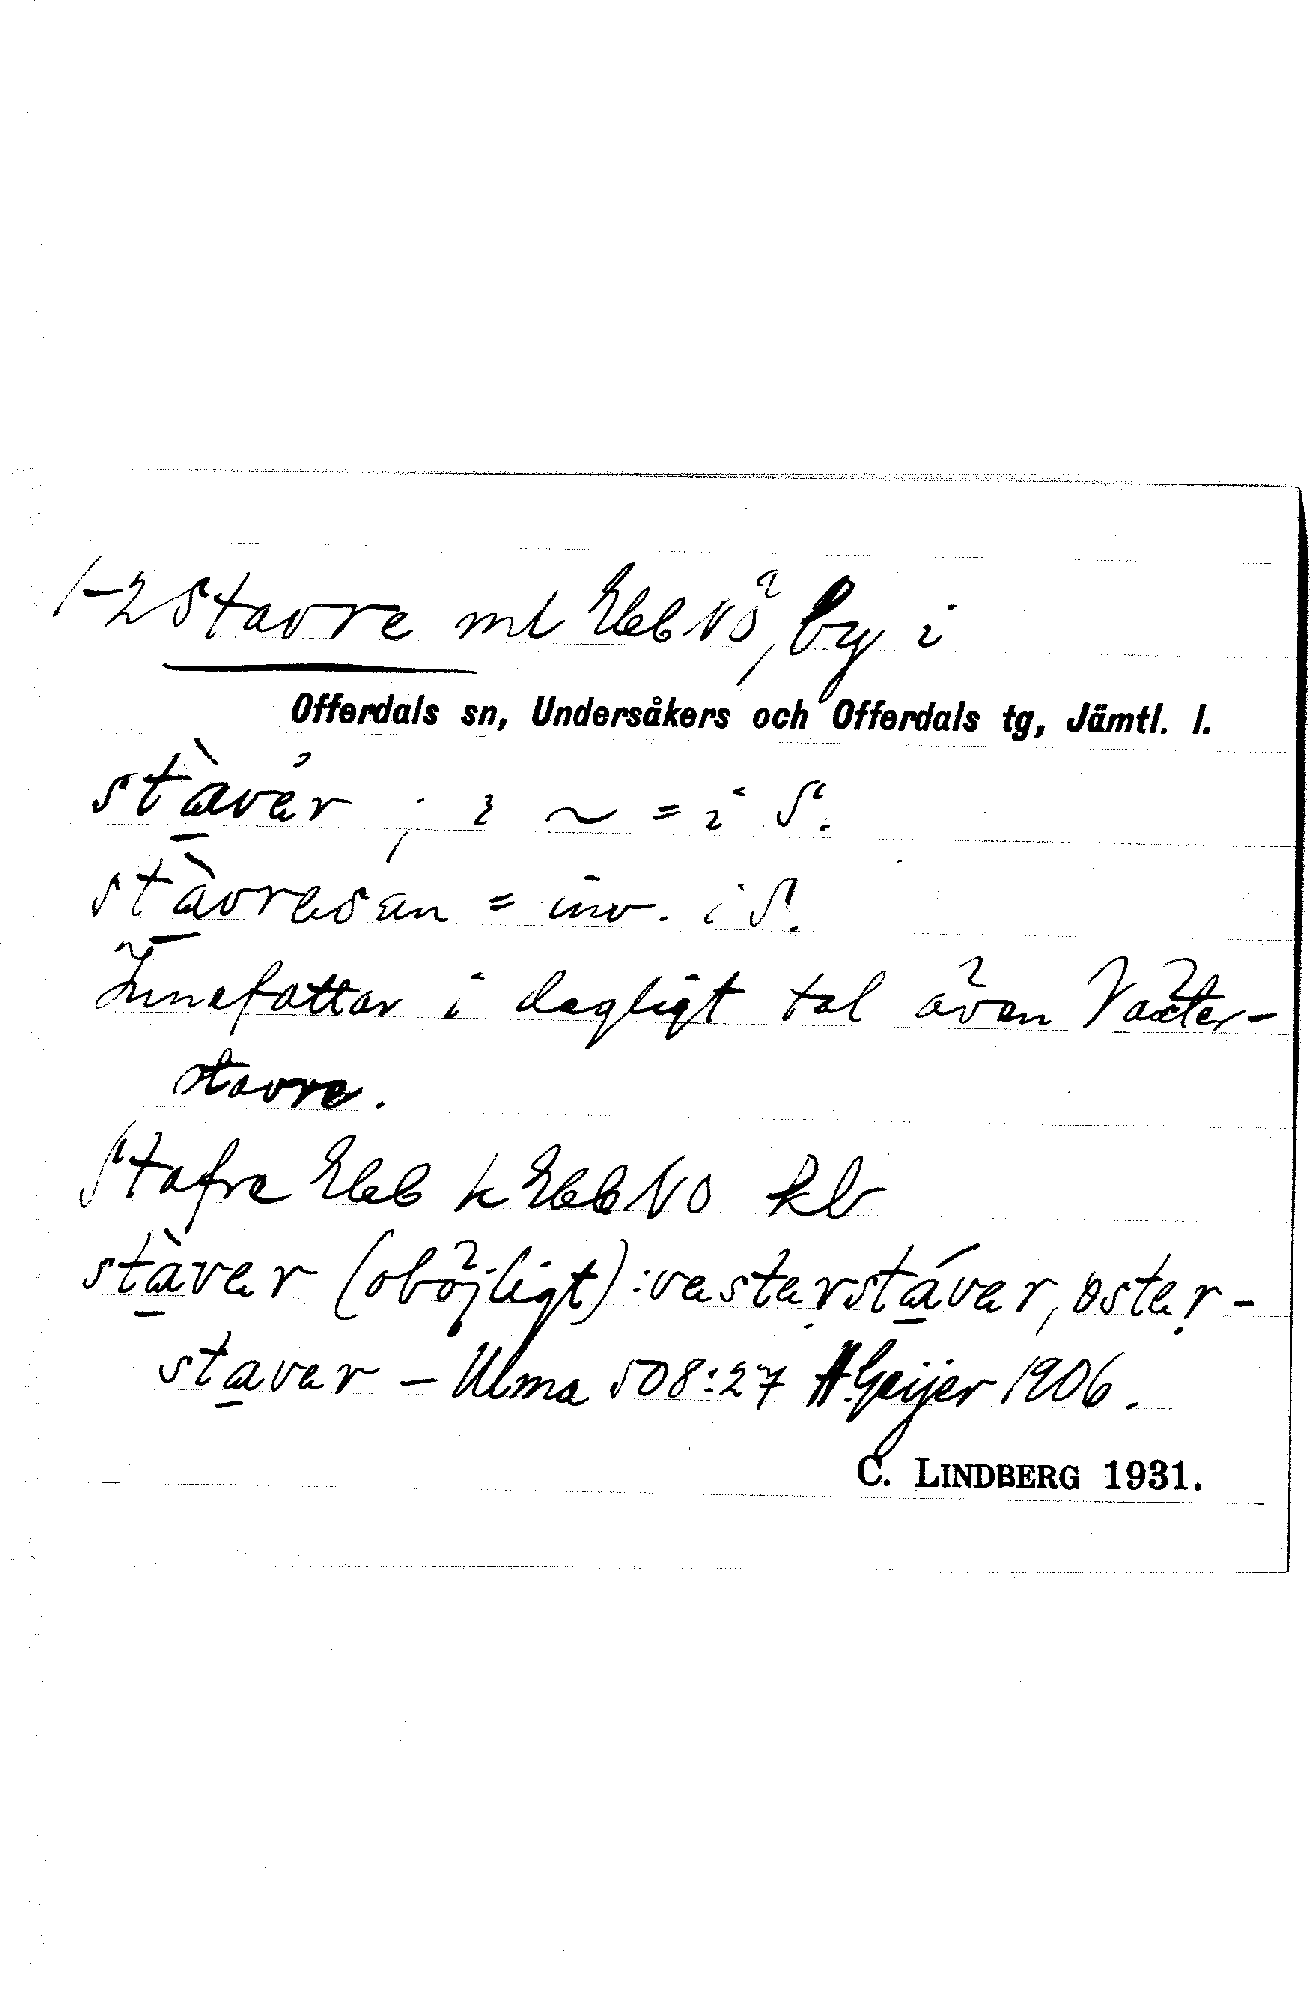 1-2 Stavre ml Ekb NÖ, by i
Offerdals sn, Undersåkers och Offerdals tg, Jämtl. l.
stàver ; i ~ = i S.
stàvresan = inv. i S.
Innefattar i dagligt tal även Väster-
stavre.
Stafre Ekb k Ekb NO kb
stàver (oböjligt): vesterstáver, öster-
staver - Ulma 508:27 H Geijer 1906.
C. LINDBERG 1931.